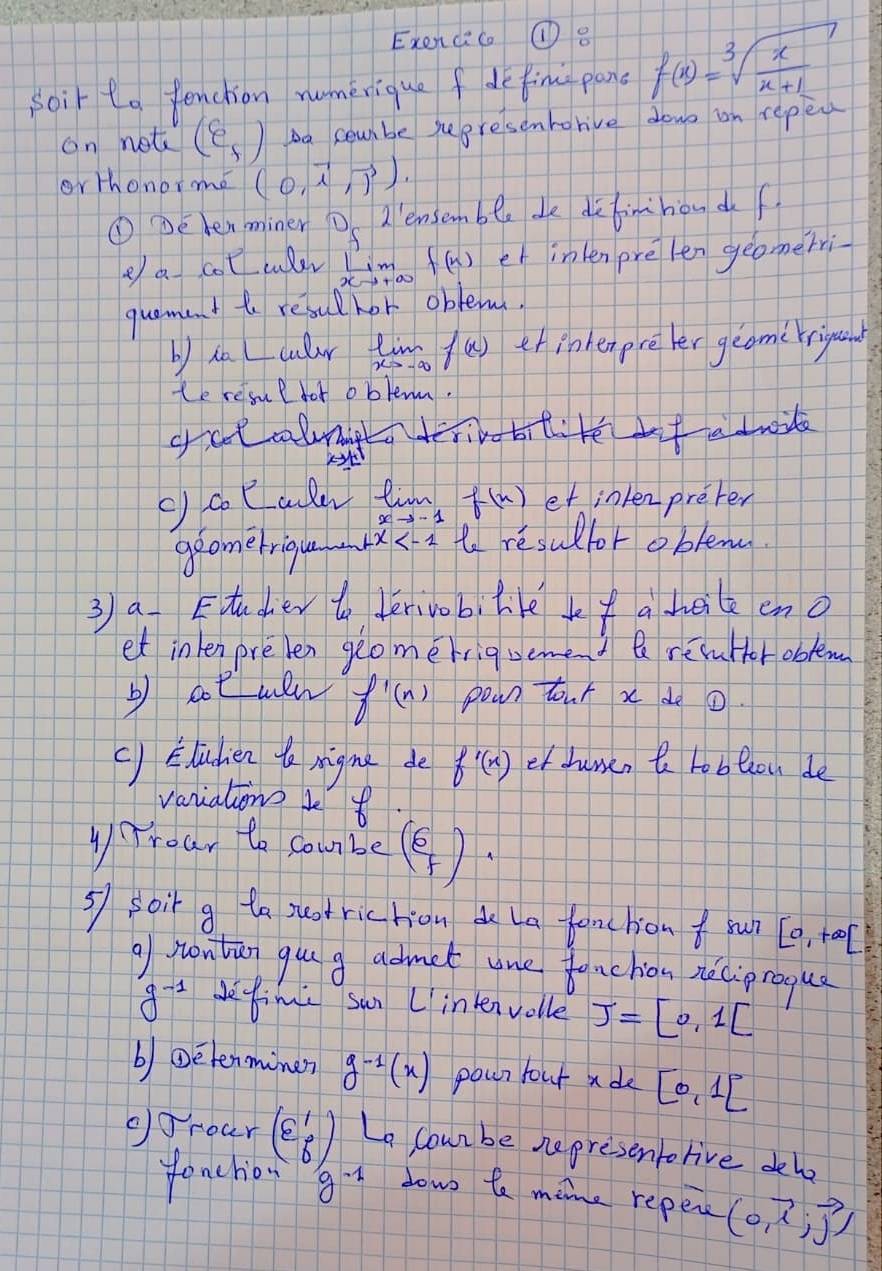 Exercice ① :
Soit la fonction numérique f définie par f(x) = ∛(x/(x+1))
on note (C_f) sa courbe représentative dans un repère
orthonormé (O, i⃗, j⃗).
① Déterminer D_f l'ensemble de définition de f.
2) a - calculer lim x→+∞ f(x) et interpréter géométri-
quement le résultat obtenu.
b) calculer lim x→-∞ f(x) et interpréter géométriquement
le résultat obtenu.
c) calculer la dérivabilité de f à droite
c) calculer lim x→-1 x<-1 f(x) et interpréter
géométriquement le résultat obtenu.
3) a - Etudier la dérivabilité de f à droite en 0
et interpréter géométriquement le résultat obtenu
b) calculer f'(x) pour tout x de D.
c) Étudier le signe de f'(x) et dresser le tableau de
variations de f.
4) Tracer la courbe (C_f).
5) soit g la restriction de la fonction f sur [0, +∞[.
a) montrer que g admet une fonction réciproque
g⁻¹ définie sur l'intervalle J = [0, 1[
b) Déterminer g⁻¹(x) pour tout x de [0, 1[
c) Tracer (C'_f) la courbe représentative de la
fonction g⁻¹ dans le même repère (O, i⃗ ; j⃗)